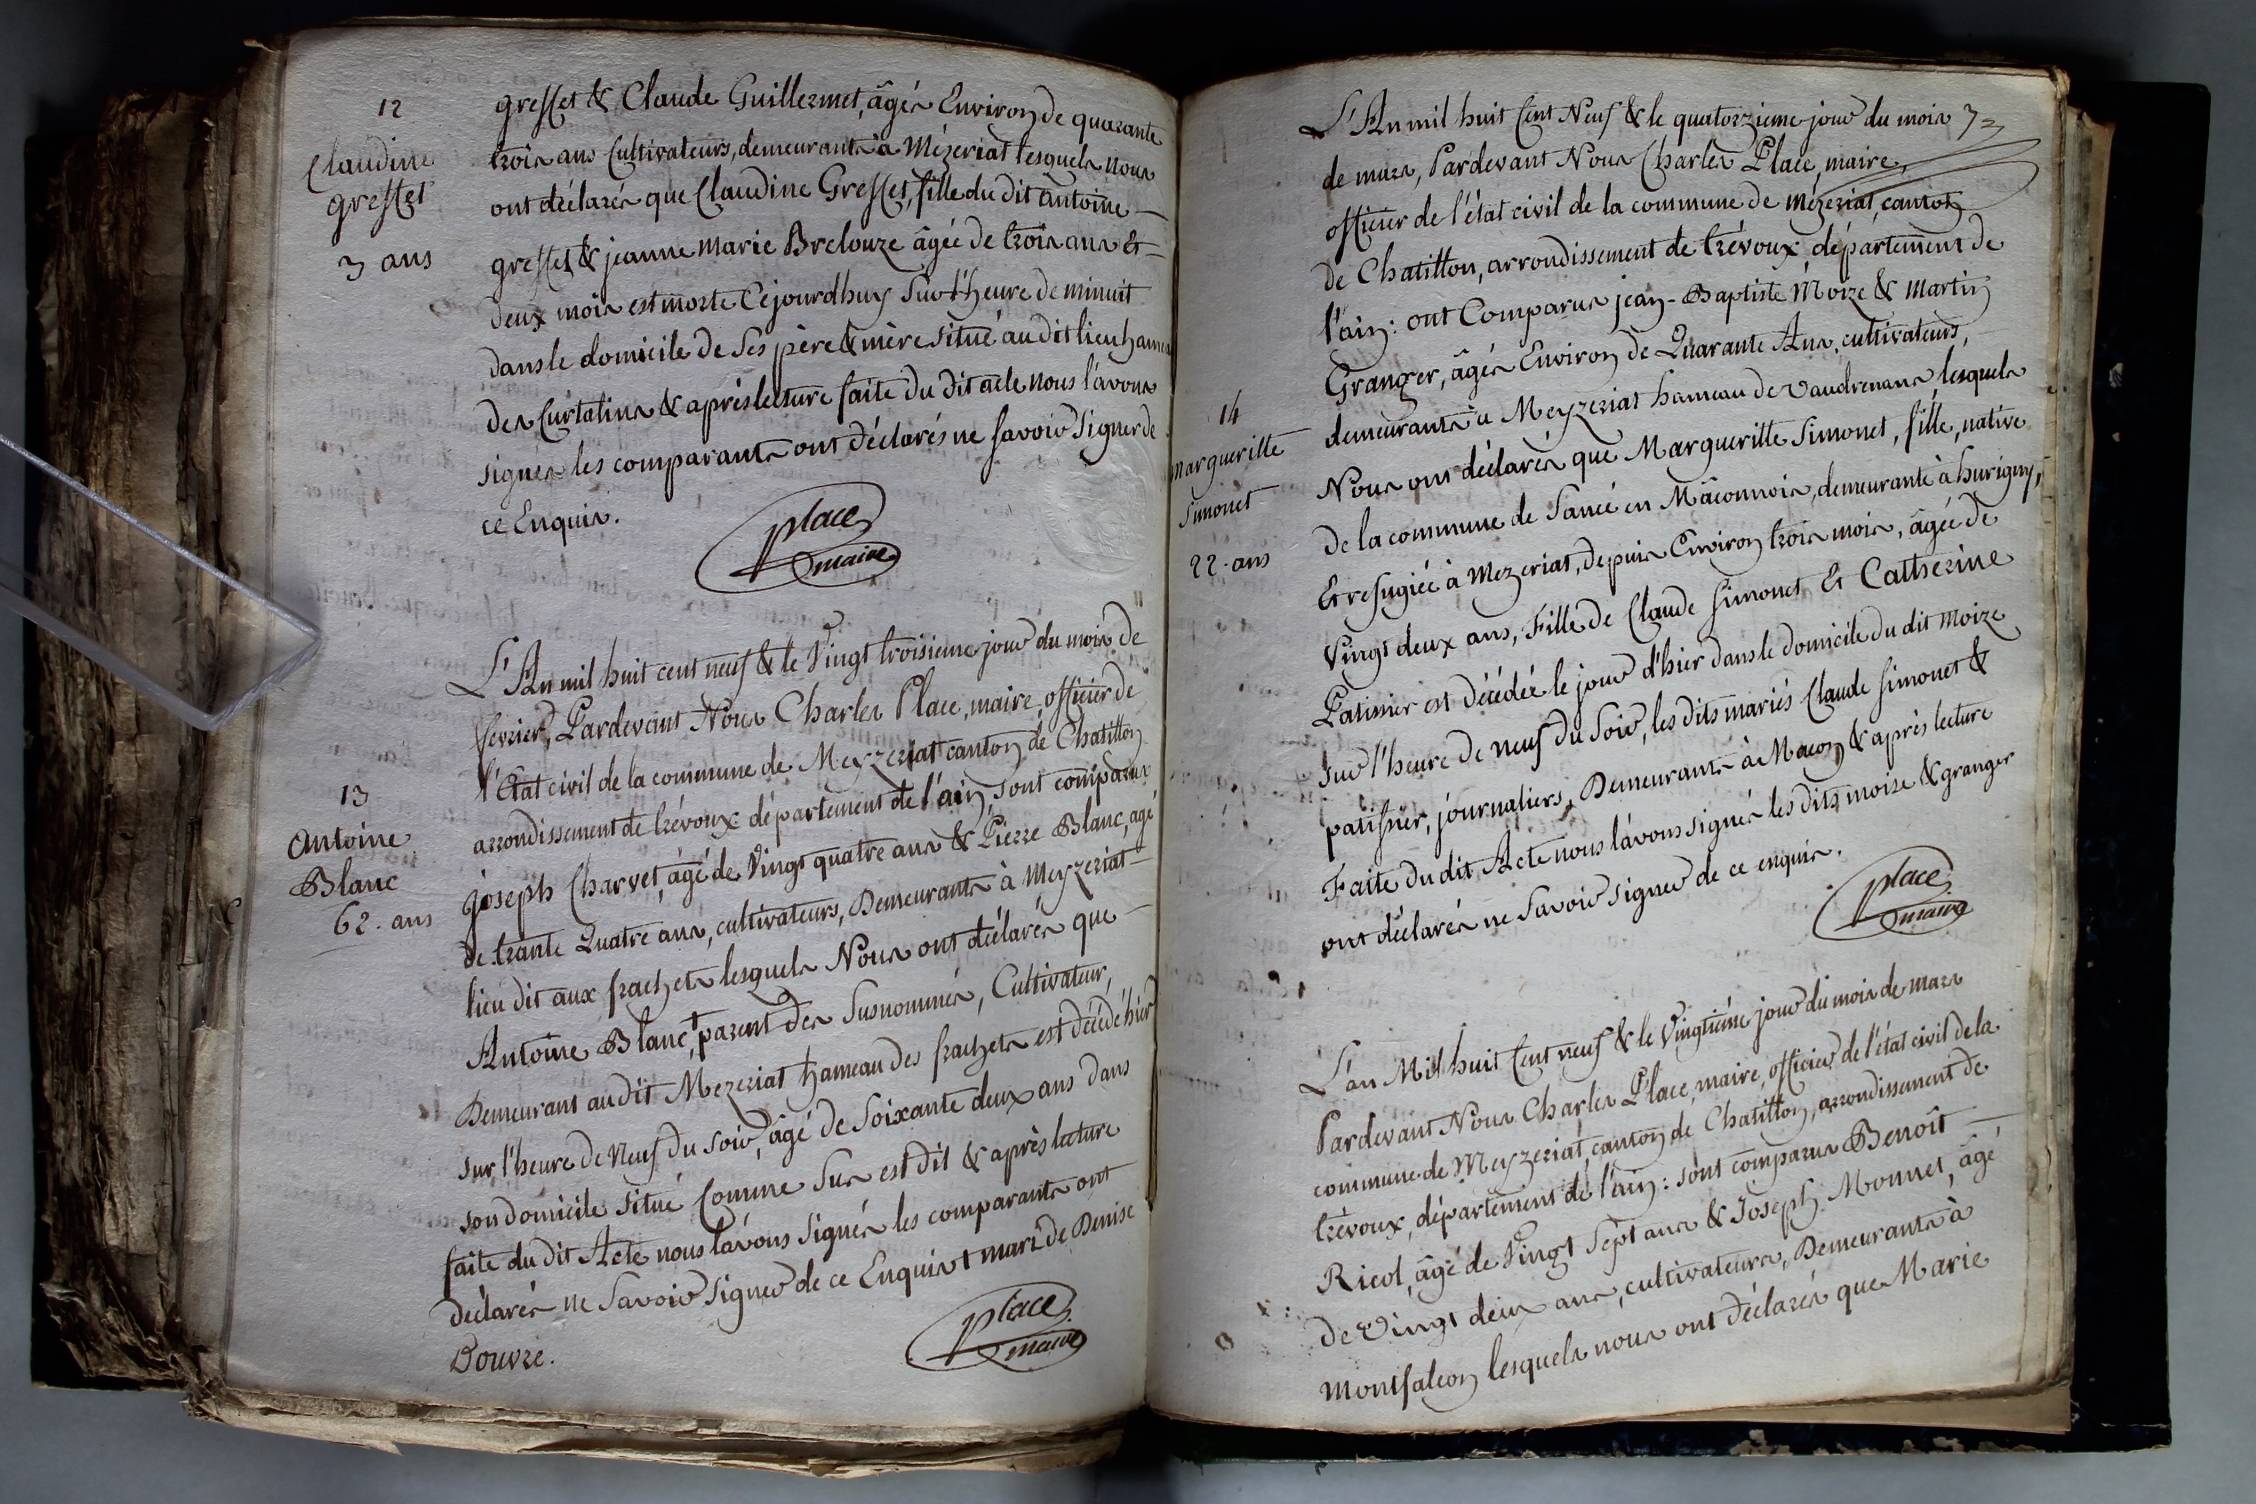 12
Claudine
gresset
3 ans
gresset & Claude Guillermet, âgés Environ de quarante
trois ans Cultivateurs, demeurants à Mézeriat lesquels nous
ont déclarés que Claudine Gresset, fille du dit antoine
gresset & jeanne marie Brelouze âgée de trois ans Et
deux mois est morte Cejourdhuy Sur l'heure de minuit
dans le domicile de Ses père & mère situé au dit lieu hameau
des Curtalins & après lecture faite du dit acte nous l'avons
signés les comparants ont déclarés ne Savoir Signer de
ce Enquis.
place
maire
13
Antoine
Blanc
62. ans
L'An mil huit cent neuf & le Vingt troisieme jour du mois de
fevrier, Pardevant Nous Charles Place, maire, officier de
l'État civil de la commune de Meyzeriat canton de Chatillon
arrondissement de trévoux département de l'ain, sont comparus
joseph Charvet, âgé de Vingt quatre ans & Pierre Blanc, agé
de trante Quatre ans, cultivateurs, Demeurants à Meyzeriat
lieu dit aux frachets lesquels Nous ont déclarés que
Antoine Blanc + parent des Susnommés, Cultivateur,
Demeurant au dit Mezeriat hameau des frachets est décédé hier
sur l'heure de Neuf du Soir, âgé de Soixante deux ans dans
son domicile situé Comme Sus est dit & après lecture
faite du dit Acte nous l'avons Signés les comparants ont
déclarés ne Savoir Signer de ce Enquis + mari de Denise
Douvre.
place
maire
73
L'An mil huit Cent Neuf & le quatorzieme jour du mois
de mars, Pardevant Nous Charles Place, maire,
officier de l'état civil de la commune de Mézeriat, canton
de Chatillon, arrondissement de trévoux, département de
l'ain : ont Comparus jean-Baptiste Moize & Martin
Granger, âgés Environ de Quarante Ans, cultivateurs,
demeurants à Meyzeriat hameau de vaudrenans, lesquels
14
Margueritte
Simonet
22. ans
Nous ont déclarés que Margueritte Simonet, fille, native
de la commune de Sancé en Mâconnois, demeurante à hurigny,
Et refugiée à Mezeriat, depuis Environ trois mois, âgée de
Vingt deux ans, Fille de Claude Simonet Et Catherine
Patissier est décédée le jour d'hier dans le domicile du dit Moize
sur l'heure de neuf du Soir, les dits mariés Claude Simonet &
patissier, journaliers, Demeurants à Macon, & après lecture
Faite du dit Acte nous l'avons signés les dits moize & granger
ont déclarés ne Savoir signer de ce enquis.
place
maire
L'an Mil huit Cent neuf & le Vingtième jour du mois de mars
Pardevant Nous Charles Place, maire, officier de l'état civil de la
commune de Meyzeriat, canton de Chatillon, arrondissement de
trévoux, département de l'ain : sont comparus Benoît
Ricol, âgé de Vingt Sept ans & Joseph Monnet, âgé
de Vingt deux ans, cultivateurs, Demeurants à
Montfalcon lesquels nous ont déclarés que Marie